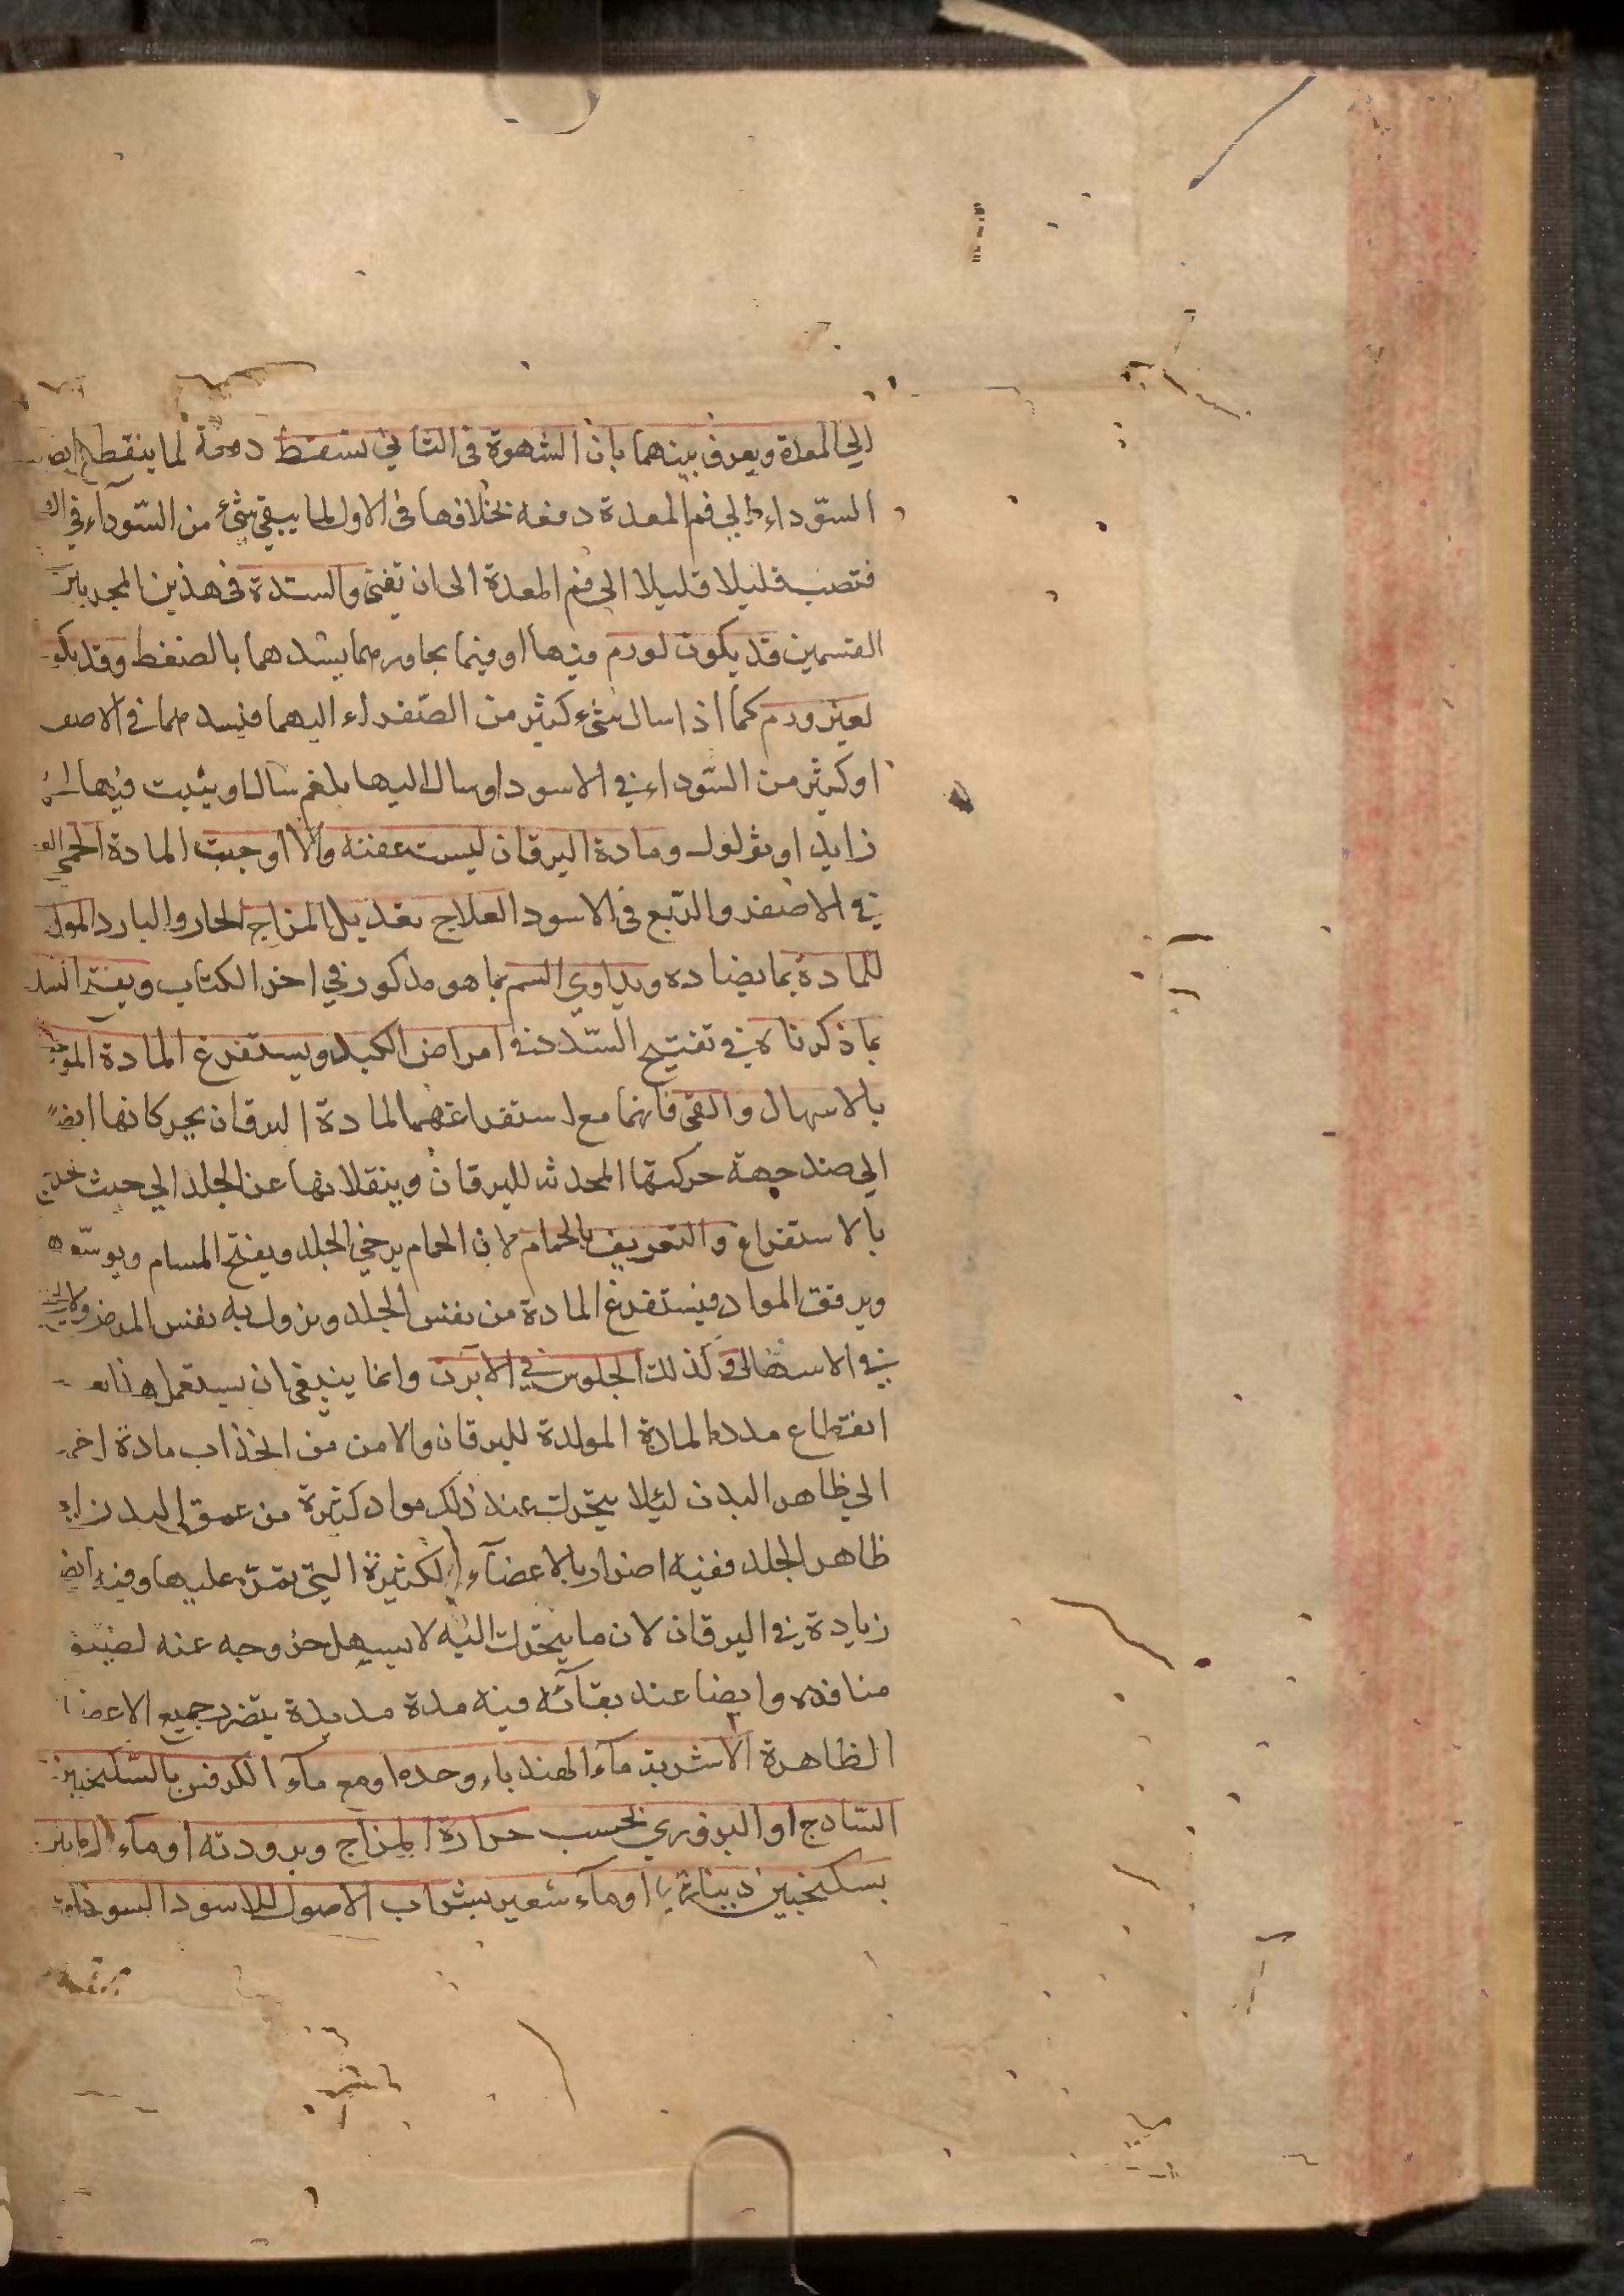 الي المعدة ويعرف بينهما بان الشهوة في الثاني تسقط دفعة لما ينقطع انص
السّوداء الي فم المعدة دفعه بخلافها في الاول لما يبقي شئ من السّودآء في ال
فتصب قليلا قليلا الي فم المعدة الى ان تفنى والسّدة في هذين المجريين
القسمين قد يكون لورم فيها او فيما يجاورهما يسدهما بالضغط وقد يكو
لغير ورم كما اذا سال شئ كثير من الصّفراء اليهما فيسدهما في الاصف
او كثير من السّوداء في الاسود او سال اليها بلغم سال او ينبت فيها لحم
زايد او ثولول ومادة اليرقان ليست عفنة والا اوجبت المادة الحمى
في الاصفر والرّبع في الاسود العلاج تعديل المزاج الحار والبارد المولد
للمادة بما يضاده ويداوي السم بما هو مذكور في اخر الكتاب ويفتح السد
بما ذكرناه في تفتيح السّدد في امراض الكبد ويستفرغ المادة
بالاسهال والقي فانهما مع استفراغهما لمادة اليرقان يحركانها ايضً
الي ضد جهة حركتها المحدثه لليرقان وينقلانها عن الجلد الي حيث تخرج
بالاستفراغ والتعريق بالحمام لان الحمام يرخي الجلد ويفتح المسام ويوسّعه
ويرقق المواد فيستفرغ المادة من نفس الجلد ويزول به نفس المرض
في الاسهال وكذلك الجلوس في الابزن وانما ينبغي ان يستعمل هذا بعد
انقطاع مدد المادة المولدة لليرقان والامن من انجذاب مادة اخر
الي ظاهر البدن لئلا يتحرك عند ذلك مواد كثيرة من عمق البدن الي
ظاهر الجلد ففيه اضرار بالاعضآء الكثيرة التي تمرّ عليها وفيه ايض
زيادة في اليرقان لان ما يتحرك اليه لا يسهل خروجه عنه لضيق
منافذه وايضا عند بقآئه فيه مدة مديدة يتضرر جميع الاعضا
الظاهرة الاشربة مآء الهندباء وحده او مع مآء الكرفس بالسّكنجبين
السّادج او البزوري بحسب حرارة المزاج وبرودته او مآء
بسكنجبين او مآء شعير بشراب الاصول للاسود